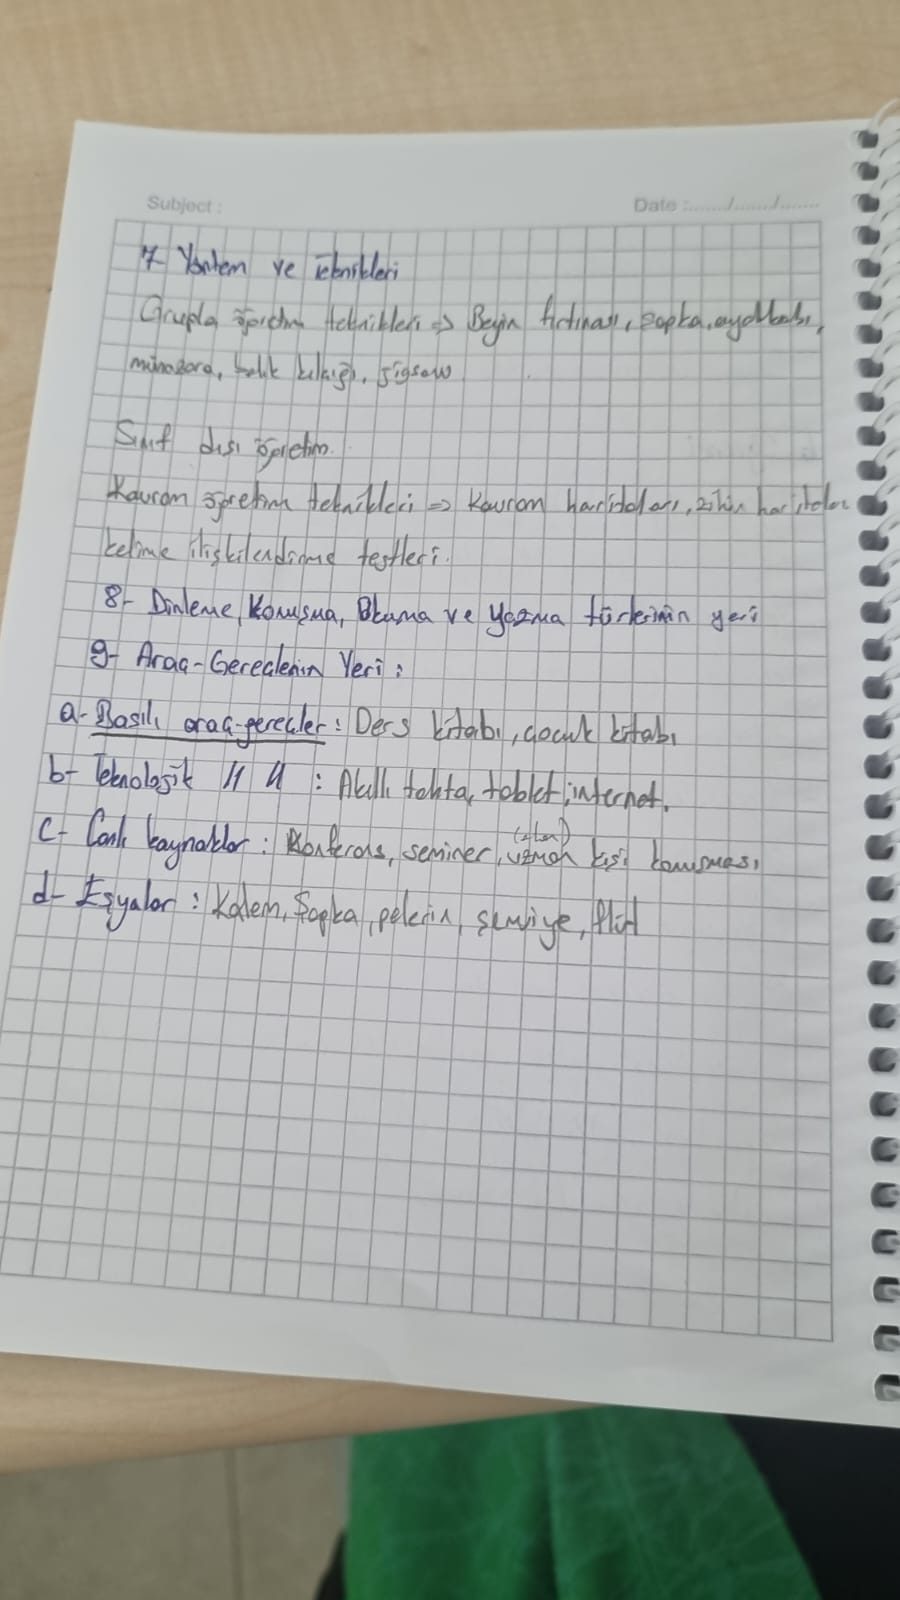 Subject :
Date :....../....../......
7- Yöntem ve teknikleri
Grupla öğretim teknikleri => Beyin fırtınası, şapka, ayakkabı,
münazara, balık kılçığı, jigsaw
Sınıf dışı öğretim.
Kavram öğretim teknikleri => Kavram haritaları, zihin haritaları
kelime ilişkilendirme testleri.
8- Dinleme, Konuşma, Okuma ve Yazma türlerinin yeri
9- Araç-Gereçlerin Yeri :
a- Basılı araç-gereçler : Ders kitabı, çocuk kitabı
b- Teknolojik " " : Akıllı tahta, tablet, internet.
(alan)
c- Canlı kaynaklar : Konferans, seminer, uzman kişi konuşması
d- Eşyalar : Kalem, Şapka, pelerin, şemsiye, flüt